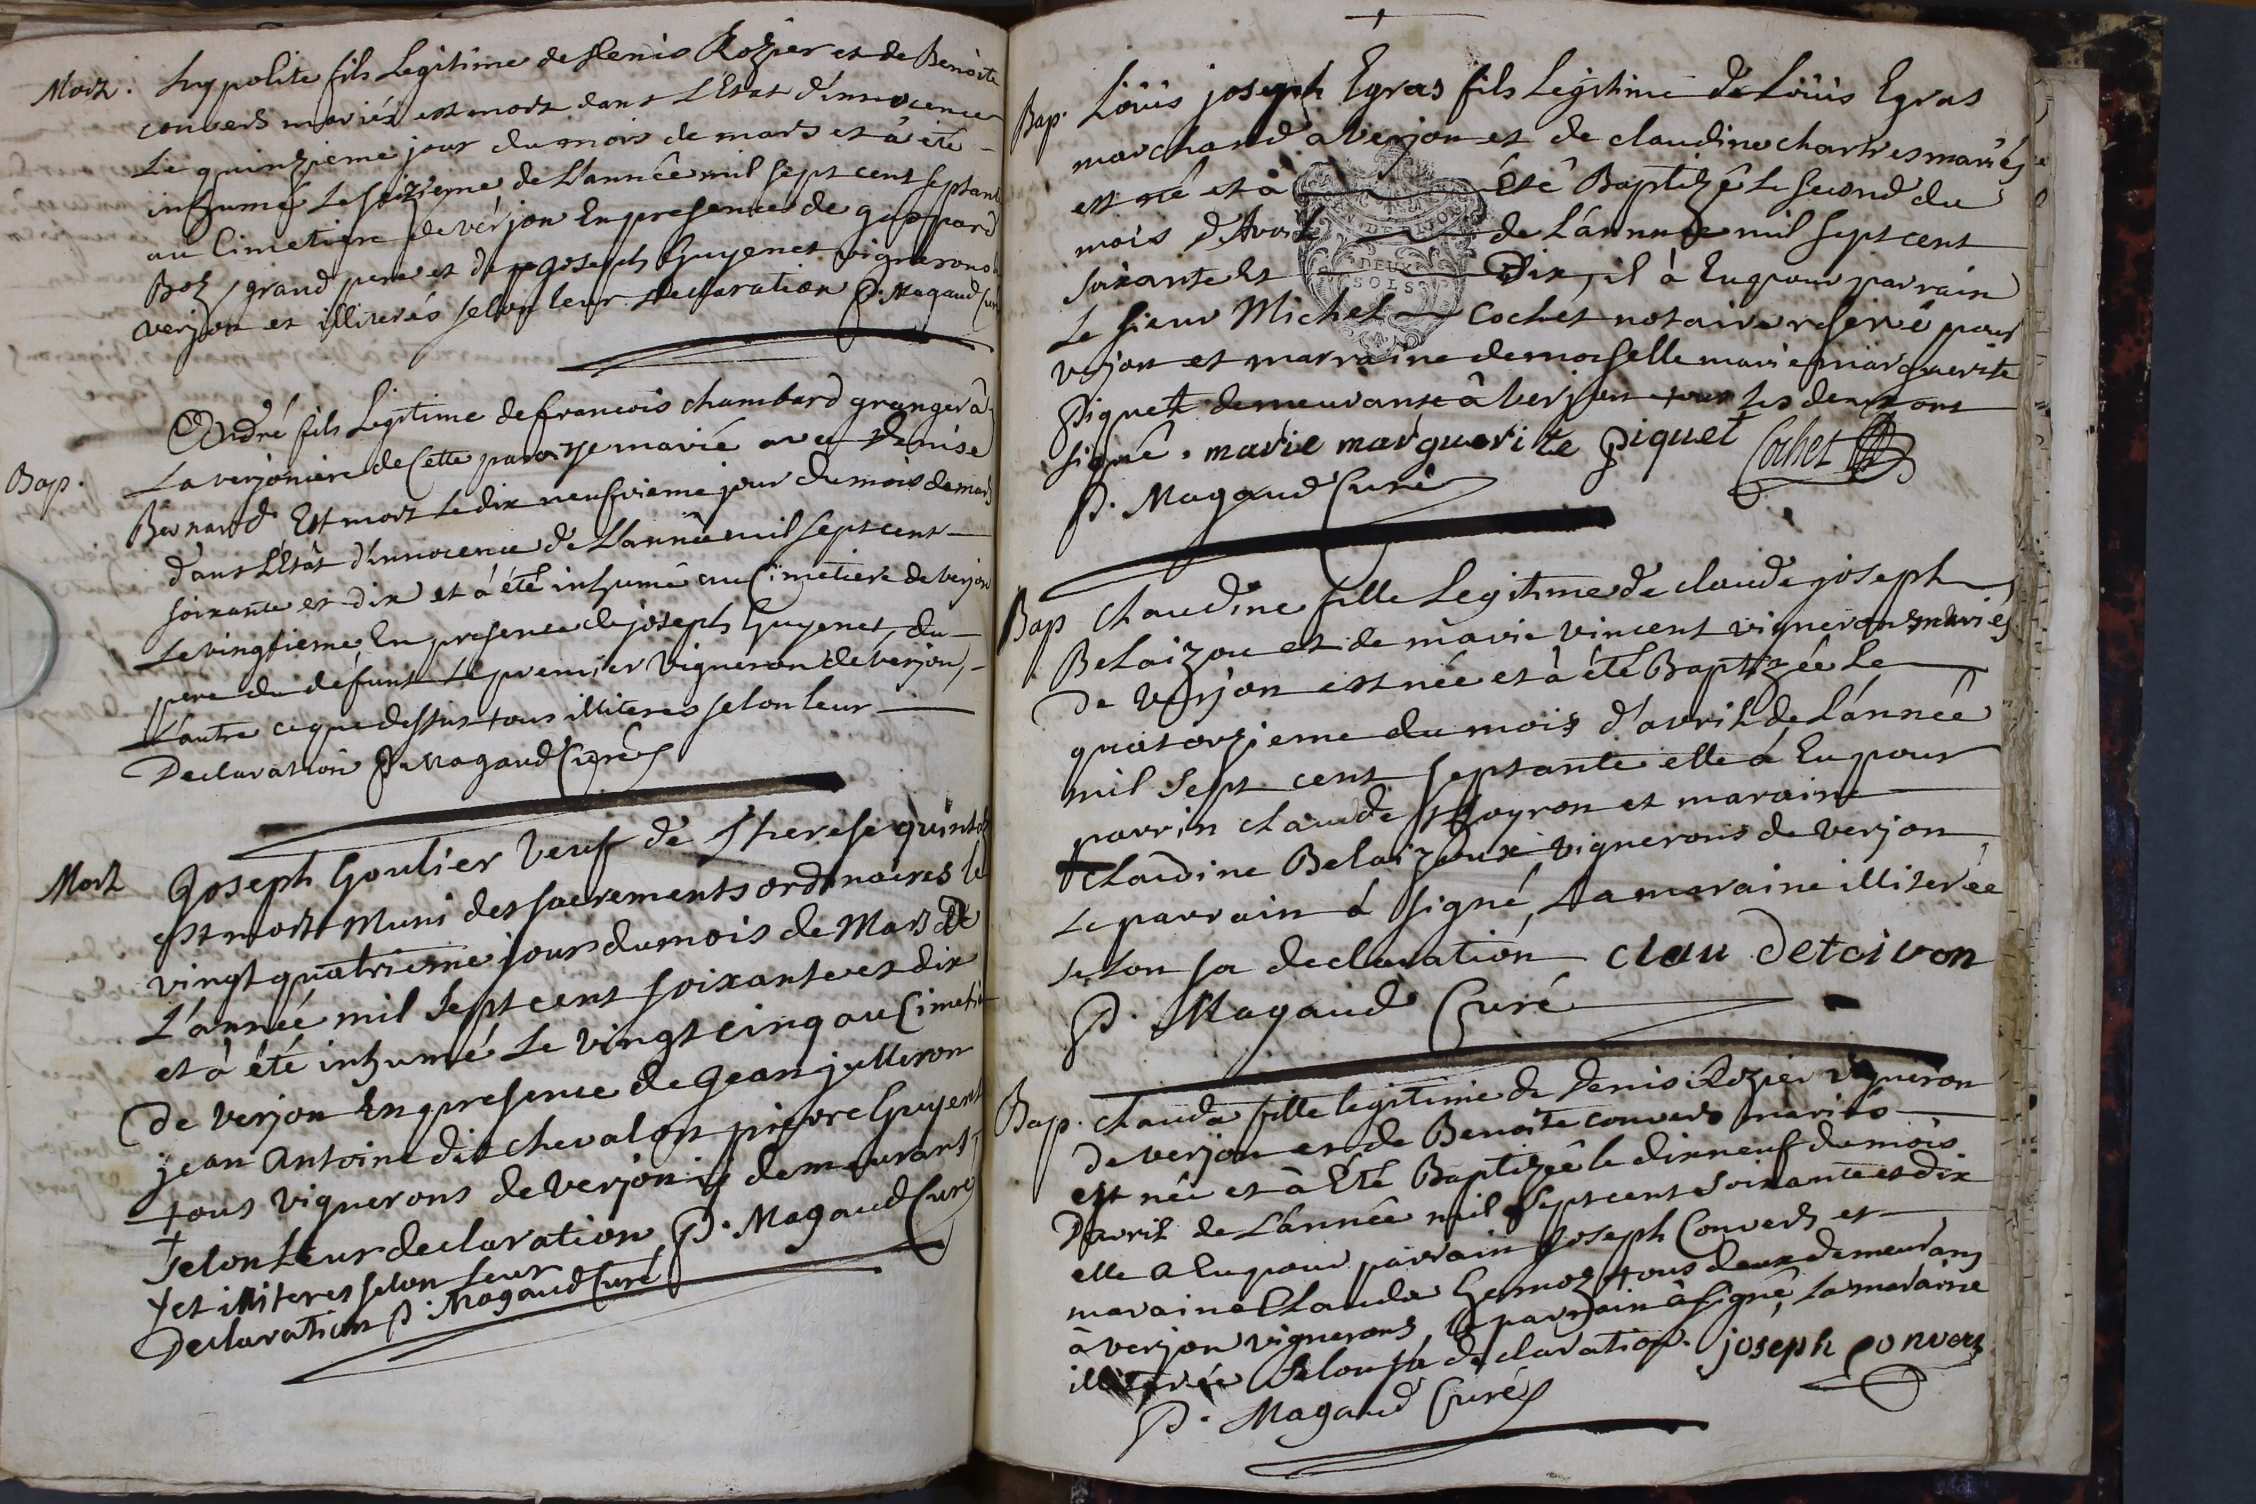 Mort. hypolite fils Legitime de denis Rozier et de Benoite
convers mariés est mort dans L'Etat d'innocence
Le quinzieme jour du mois de mars et à été
inhumé Le seizieme de L'année mil sept cent septante
au Cimetiere de verjon En presence de gaspard
Boz grand pere et de joseph Guyenet vignerons
verjon et illiterés selon leur declaration P. Magaud Curé
Bap. André fils Legitime de francois chambard granger à
La verjoniere de Cette paroisse marié avec denise
Bernard Est mort Le dix neufvieme jour du mois de mars
dans L'Etat d'innocence de L'année mil sept cent
soixante et dix et à été inhumé au Cimetiere de verjon
Le vingtieme En presence de joseph Guyenet, du
pere du défunt Le premier vigneron de verjon,
L'autre ce que dessus tous illiteres selon leur
Declaration P. Magaud Curé
Mort Joseph Goulier veuf de Therese quintoz
est mort Muni des sacrements ordinaires le
vingt quatrieme jour du mois de Mars de
L'année mil sept cent soixante et dix
et à été inhumé Le vingt cinq au Cimetiere
de verjon En presence de Jean julleron
jean Antoine dit chevalon pierre Guyenet
tous vignerons de verjon y demeurant
selon Leur declaration P. Magaud Curé
† et illiteres selon Leur
Declaration P. Magaud Curé
Bap. Loüis joseph Egras fils Legitime de Loüis Egras
marchand à verjon et de claudine chartres mariés
est né et à Été Baptizé Le second du
mois d'Avril de L'année mil sept cent
soixante et Dix, il à Eu pour parrain
Le sieur Michel Cochet notaire reservé pour
verjon et marraine demoiselle marie marguerite
Piquet demeurante à verjon tous les deux ont
signé. marie marguerite piquet Cochet
P. Magaud Curé
DEUX
SOLS
Bap Claudine fille Legitime de claude joseph
Belaizou et de marie vincent vignerons mariés
de verjon est née et à été Baptizée Le
quatorzieme du mois d'avril de L'année
mil sept cent septante elle à Eu pour
parrin claude et maraine
claudine Belaizoux vignerons de verjon
Le parrain à signé, La maraine illiterée
selon sa declaration clau detoivon
P. Magaud Curé
Bap. Clauda fille legitime de denis Rozier vigneron
de verjon et de Benoite convers mariés
est née et à Été Baptizée le dix neuf du mois
D'avril de L'année mil sept cent soixante et dix
elle a Eu pour parrain Joseph Convers et
maraine Clauda tous deux demeurans
à verjon vignerons, le parrain à signé, La maraine
illiterée selon sa declaration. joseph convers
P. Magaud Curé